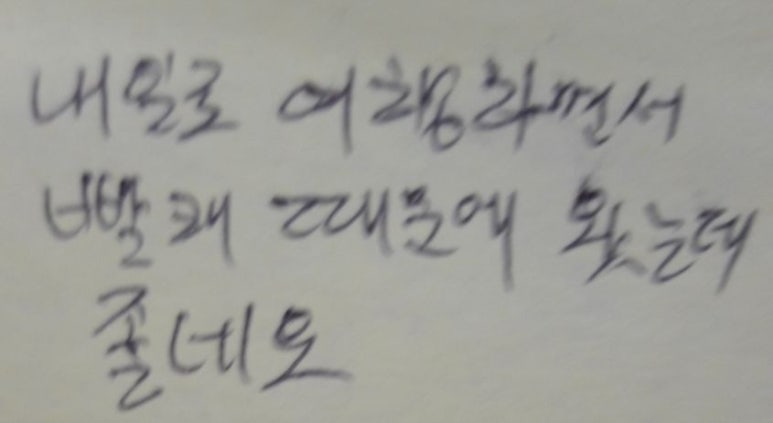 내일로 여행하면서
빨래 때문에 왔는데
좋네요